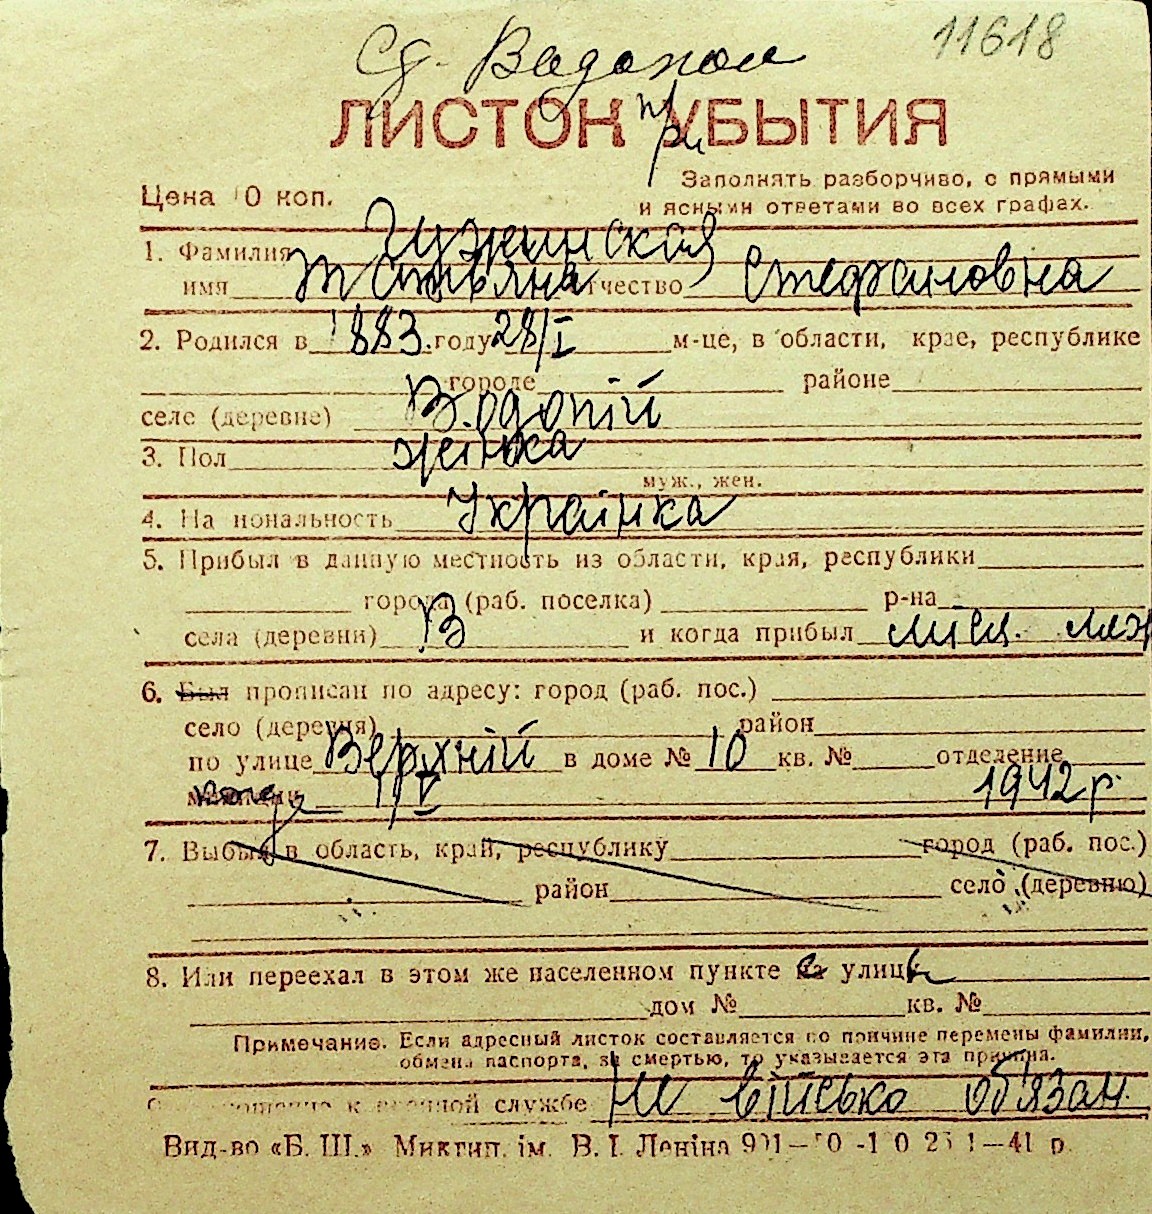 11618
Сд. Водопой
ЛИСТОК УБЫТИЯ
при
Цена 10 коп.
Заполнять разборчиво, с прямыми
и ясными ответами во всех графах.
1. Фамилия
имя Татьяна отчество Стефановна
2. Родился в 1883 году 28/I м-це, в области, крае, республике
городе районе
селе (деревне) Водопій
3. Пол жінка
муж., жен.
4. Национальность Українка
5. Прибыл в данную местность из области, края, республики
города (раб. поселка) р-на
села (деревни) В и когда прибыл
6. Был прописан по адресу: город (раб. пос.)
село (деревня) район
по улице Верхній в доме № 10 кв. № отделение
милиции IV 1942 р.
7. Выбыл в область, край, республику город (раб. пос.)
район село (деревню)
8. Или переехал в этом же населенном пункте на улицу
дом № кв. №
Примечание. Если адресный листок составляется по причине перемены фамилии,
обмена паспорта, за смертью, то указывается эта причина.
к военной службе Не військо об'язан.
Вид-во «Б. Ш.» Миктип. ім. В. І. Леніна 41 р.